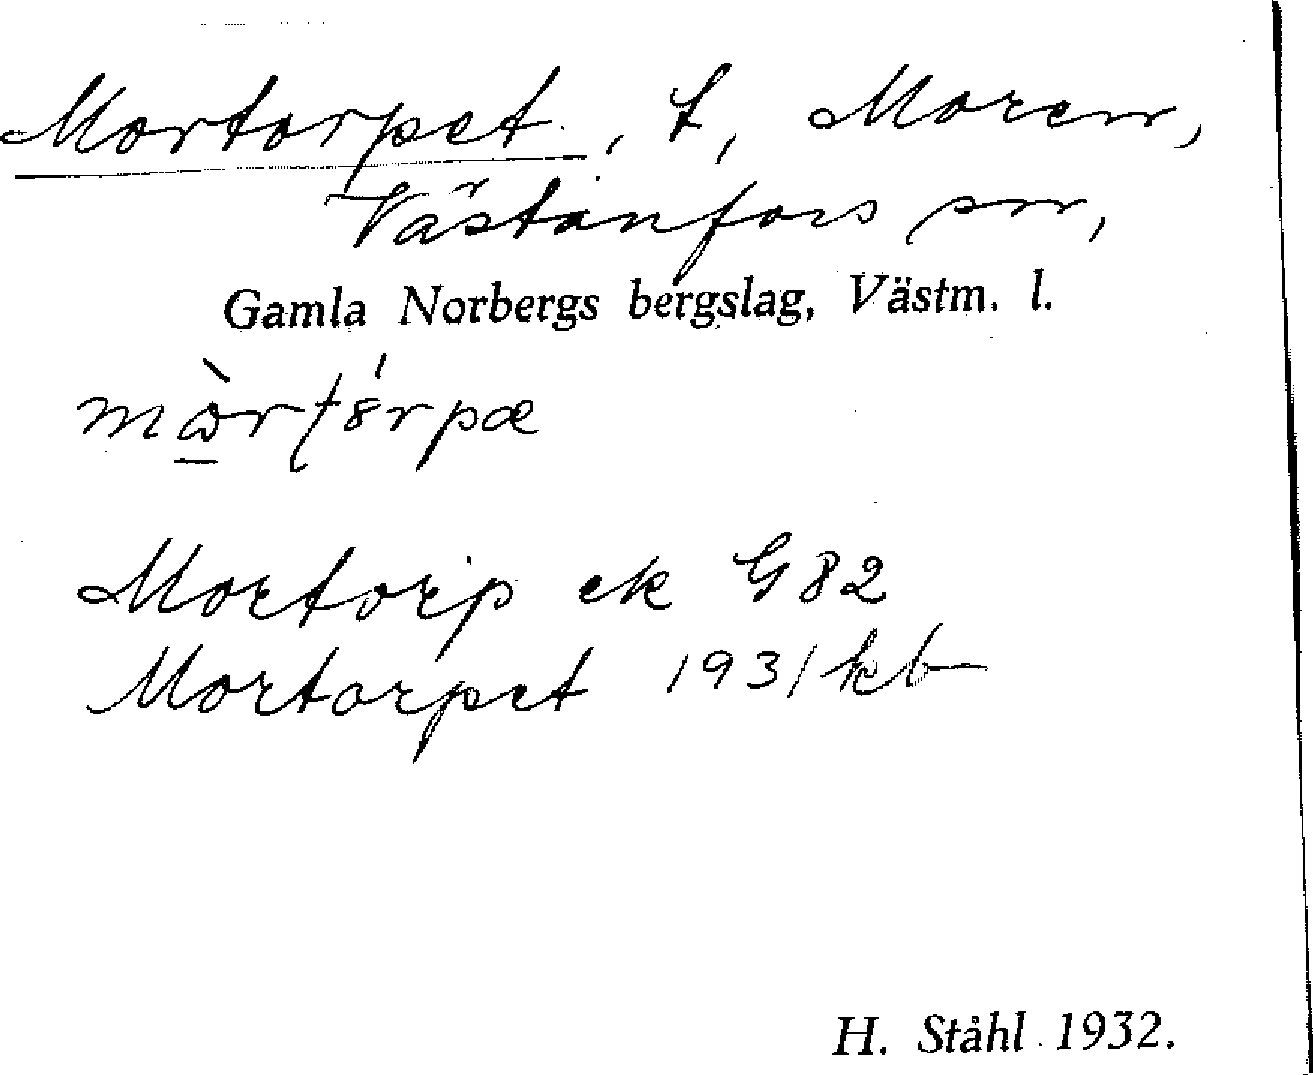 Mortorpet, t, Moren,
Västanfors sn,
Gamla Norbergs bergslag, Västm. l.
Mortorp ek G 82
Mortorpet 1931 kb
H. Ståhl 1932.